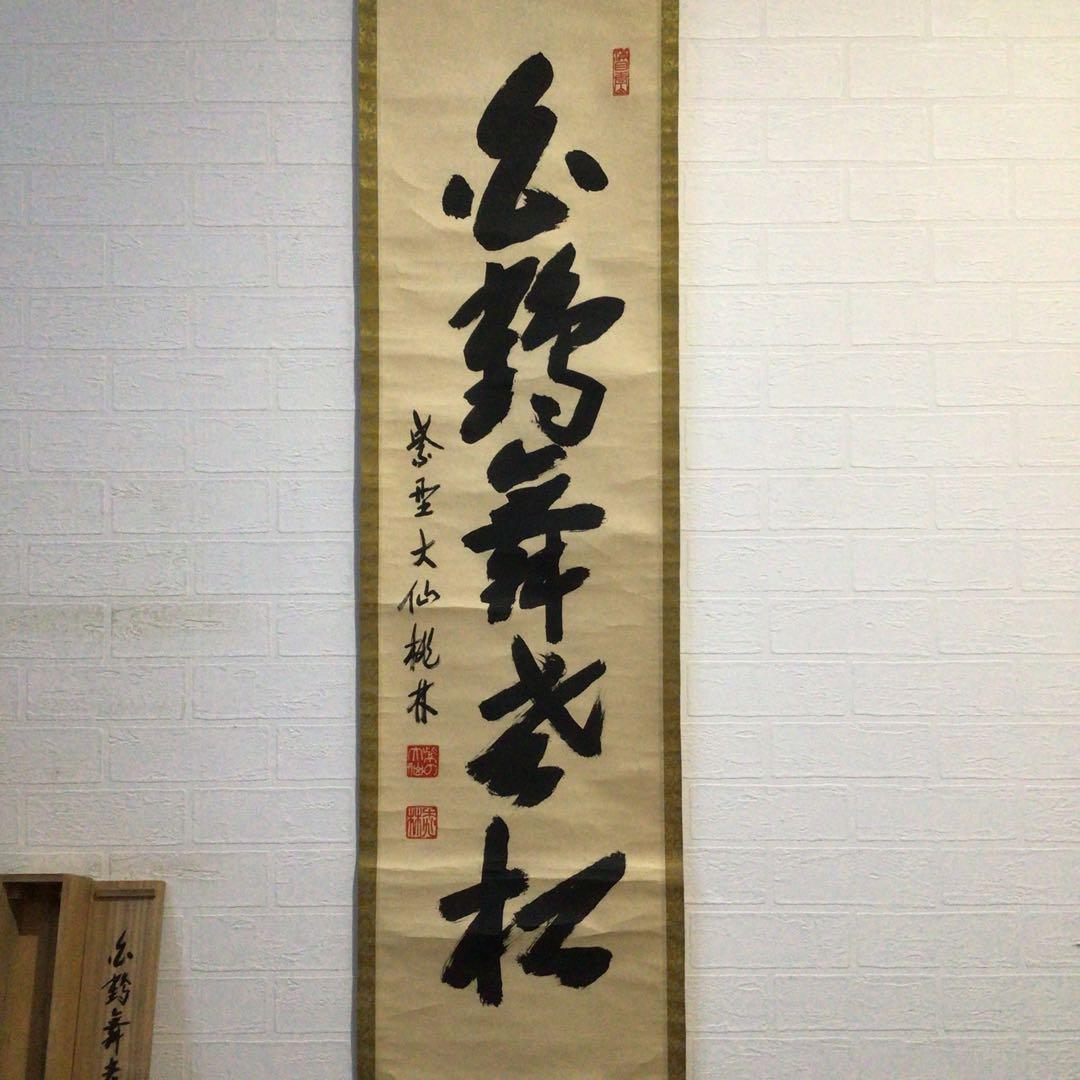 白鶴舞老松
紫野大仙桃林
白鶴舞老